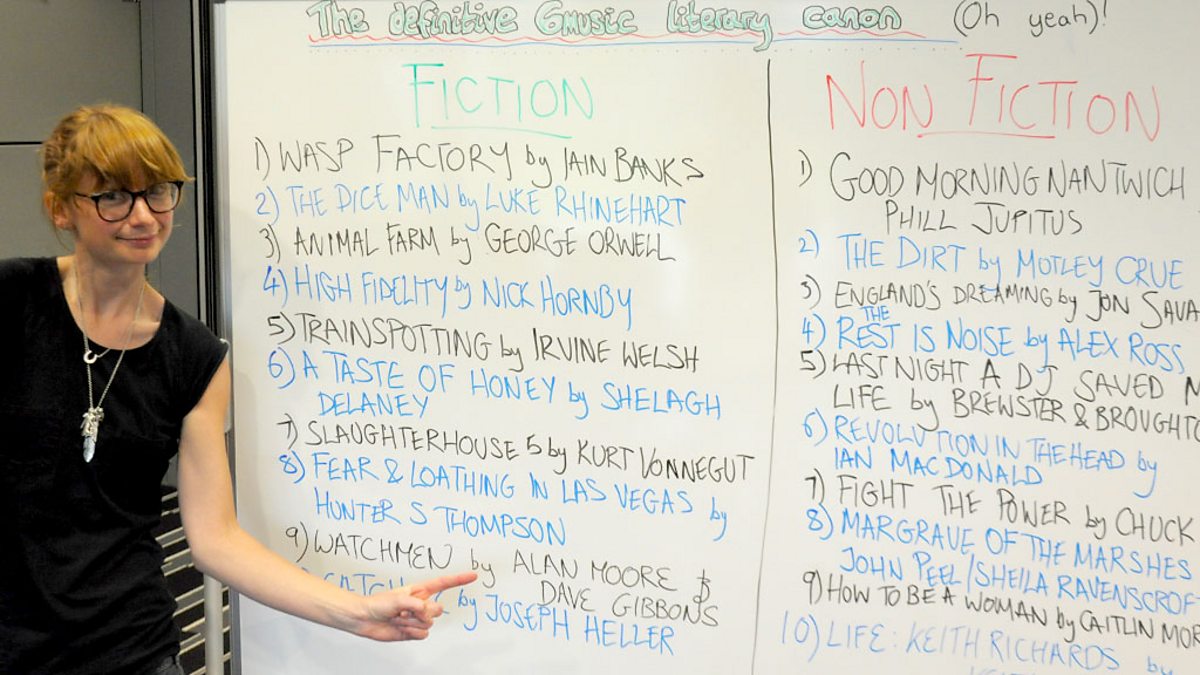 The definitive 6music literary canon (Oh yeah)!
FICTION
1) WASP FACTORY by IAIN BANKS
2) THE DICE MAN by LUKE RHINEHART
3) ANIMAL FARM by GEORGE ORWELL
4) HIGH FIDELITY by NICK HORNBY
5) TRAINSPOTTING by IRVINE WELSH
6) A TASTE OF HONEY by SHELAGH
DELANEY
7) SLAUGHTERHOUSE 5 by KURT VONNEGUT
8) FEAR & LOATHING IN LAS VEGAS by
HUNTER S THOMPSON
9) WATCHMEN by ALAN MOORE &
DAVE GIBBONS
by JOSEPH HELLER
NON FICTION
1) GOOD MORNING NANTWICH
PHILL JUPITUS
2) THE DIRT by MOTLEY CRUE
3) ENGLAND'S DREAMING by JON SAVA
THE
4) REST IS NOISE by ALEX ROSS
5) LAST NIGHT A DJ SAVED M
LIFE by BREWSTER & BROUGHTO
6) REVOLUTION IN THE HEAD by
IAN MACDONALD
7) FIGHT THE POWER by CHUCK
8) MARGRAVE OF THE MARSHES
JOHN PEEL/SHEILA RAVENSCROF
9) HOW TO BE A WOMAN by CAITLIN MOR
10) LIFE: KEITH RICHARDS by